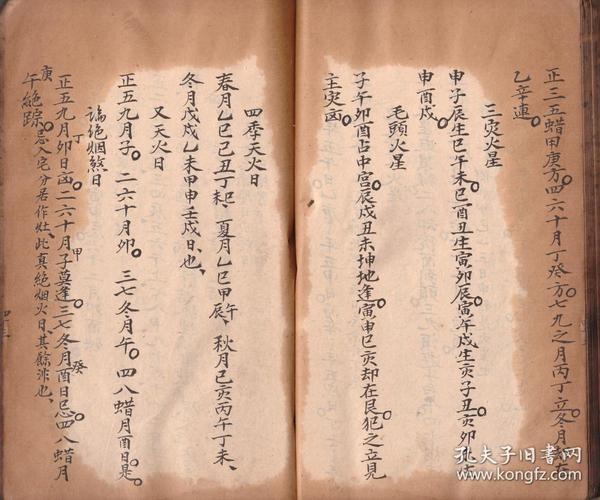 正三五蜡甲庚方。四六十月丁癸方。七九之月丙丁立。冬月
乙辛連。
三灾火星
申子辰生巳午未。巳酉丑生寅卯辰。寅午戌生亥子丑。亥卯
申酉戌。
毛頭火星
子午卯酉占中宫。辰戌丑未坤地逢。寅申巳亥却在艮。犯之立見
主灾凶。
四季天火日
春月乙巳己丑丁未巳、夏月乙巳甲午辰、秋月己亥丙午丁未、
冬月戊戌乙未甲申壬戌日、也、
又天火日
正五九月子。二六十月卯。三七冬月午。四八蜡月酉日是。
論絶烟煞日
正五九月卯丁日凶。二六十月子甲莫逢。三七冬月酉癸日忌。四八蜡月
午庚絶踪。忌入宅分居作灶、此真絶烟火日、其餘非也、
孔夫子旧书网
kongfz.com